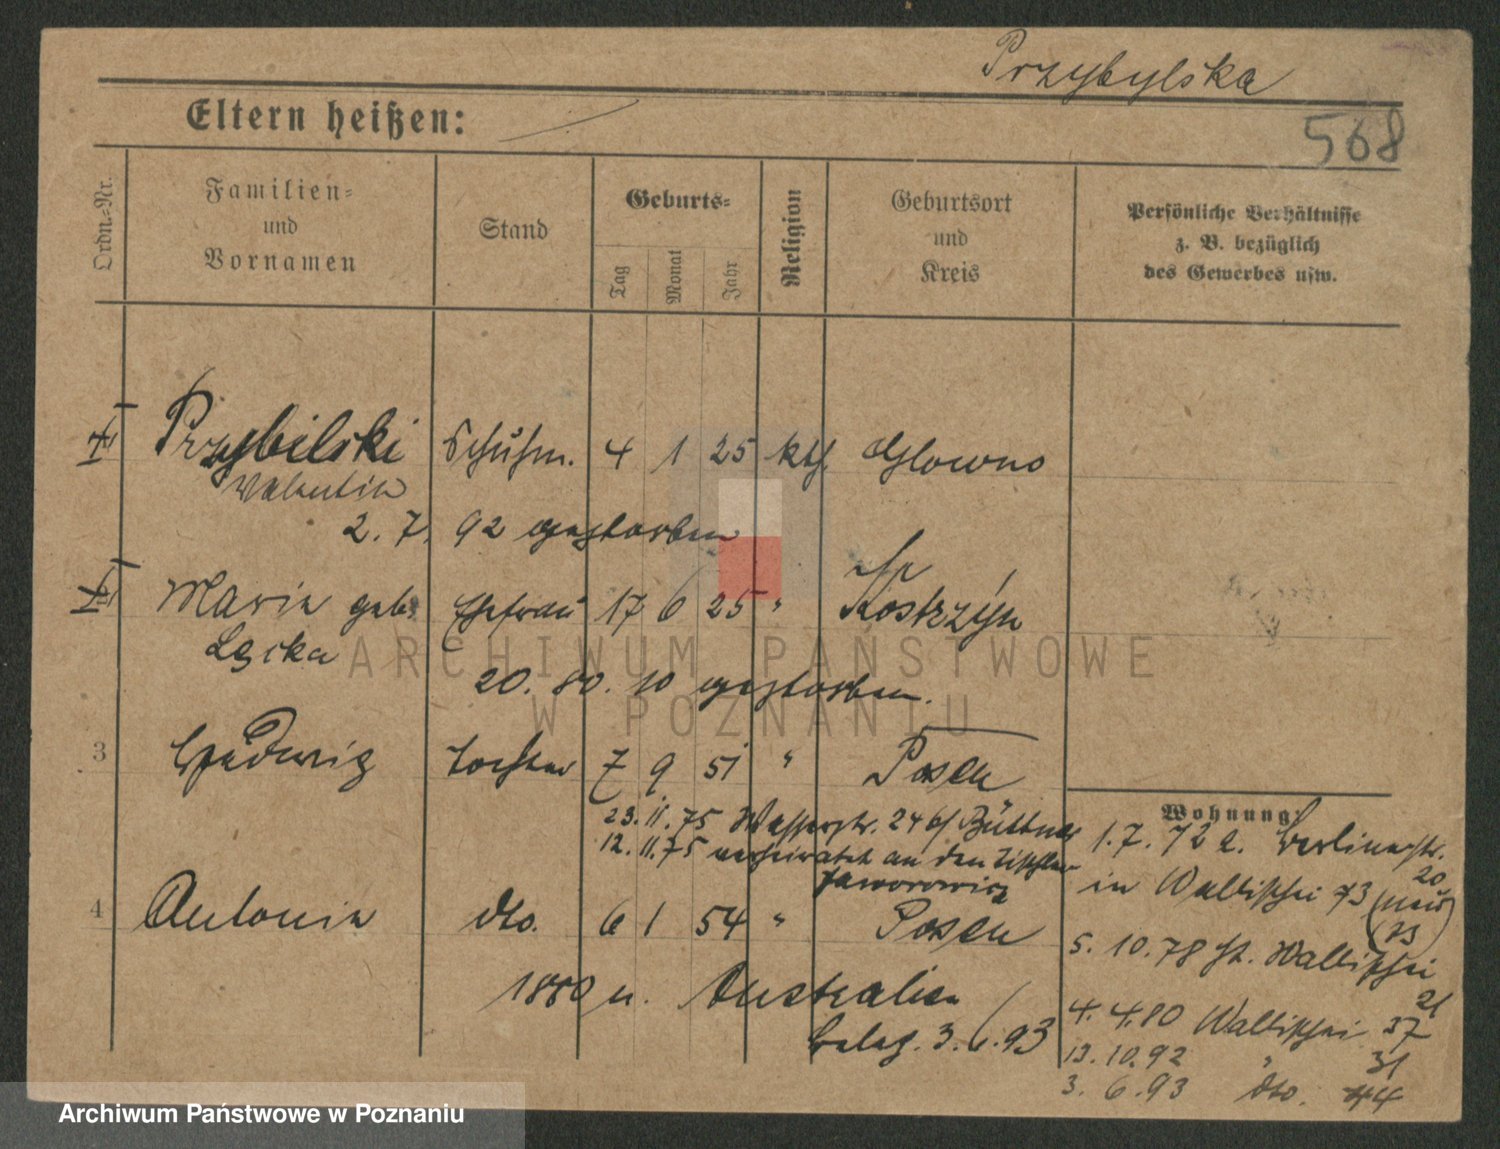 Przybylska
Eltern heißen:
568
Ordn.-Nr.
Familien-
und
Vornamen
Stand
Geburts-
Tag
Monat
Jahr
Religion
Geburtsort
und
Kreis
Persönliche Verhältnisse
z. B. bezüglich
des Gewerbes usw.
Przybilski Schuhm. 4 1 25 kth. Glowno
Valentin
2. 7. 92 gestorben
Maria geb. Ehefrau 17 6 25 " Kostrzyn
20. 10 gestorben.
3 Hedwig Tochter 7 9 51 " Posen
23. 11. 75 Wasserstr. 24 b/ Büttner
12. 11. 75 verheiratet an den Tischler
Jaworowicz
4 Antonia dto. 6 1 54 " Posen
1880 n. Australien
belag. 3. 6. 93
Wohnung:
1. 7. 72 Berlinerstr.
20
in Wallischei 73 (neu
73)
5. 10. 78 Wallischei
21
4. 4. 80 Wallischei 37
13. 10. 92 " 31
3. 6. 93 dto. 44
ARCHIWUM PAŃSTWOWE
W POZNANIU
Archiwum Państwowe w Poznaniu